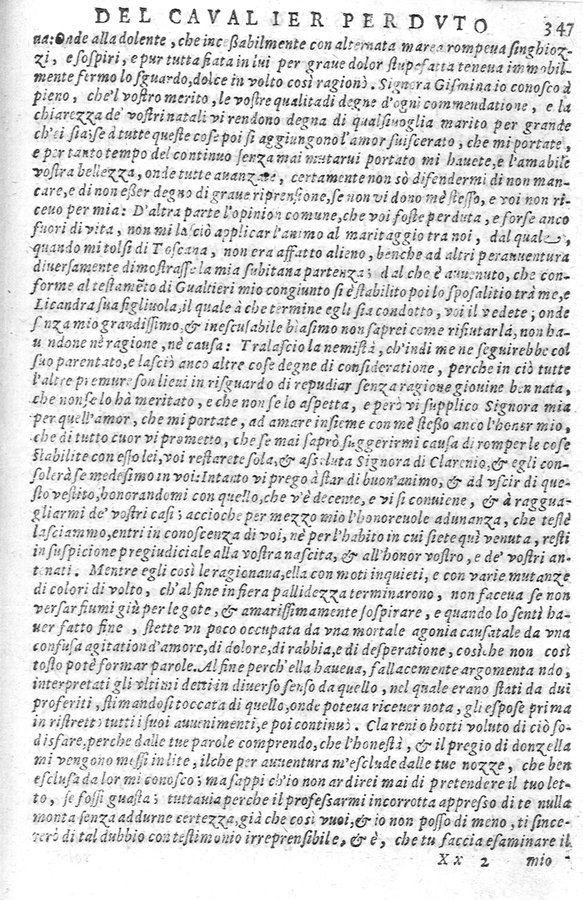 DEL CAVALIER PERDVTO 347
na: Onde alla dolente, che inceßabilmente con alternata marea rompeua singhioz-
zi, e sospiri, e pur tutta fiata in lui per graue dolor stupefatta teneua immobil-
mente fermo lo sguardo, dolce in volto così ragionò. Signora Gismina io conosco à
pieno, che'l vostro merito, le vostre qualitadi degne d'ogni commendatione, e la
chiarezza de' vostri natali vi rendono degna di qualsiuoglia marito per grande
ch'ei sia; se à tutte queste cose poi si aggiungono l'amor suiscerato, che mi portate,
e per tanto tempo del continuo senza mai mutarui portato mi hauete, e l'amabile
vostra bellezza, onde tutte auanzate, certamente non sò difendermi di non man-
care, e di non eßer degno di graue riprensione, se non vi dono mè stesso, e voi non ri-
ceuo per mia: D'altra parte l'opinion comune, che voi foste perduta, e forse anco
fuori di vita, non mi lasciò applicar l'animo al maritaggio tra noi, dal quale,
quando mi tolsi di Toscana, non era affatto alieno, benche ad altri perauuentura
diuersamente dimostrasse la mia subitana partenza; dal che è auuenuto, che con-
forme al testamẽto di Gualtieri mio congiunto si è stabilito poi lo sposalitio trà me, e
Licandra sua figliuola, il quale à che termine egli sia condotto, voi il vedete; onde
senza mio grandissimo, & inescusabile biasimo non saprei come rifiutarla, non ha-
uendone nè ragione, nè causa: Tralascio la nemistà, ch'indi me ne seguirebbe col
suo parentato, e lasciò anco altre cose degne di consideratione, perche in ciò tutte
l'altre premure son lieui in risguardo di repudiar senza ragione giouine ben nata,
che non se lo hà meritato, e che non se lo aspetta, e però vi supplico Signora mia
per quell'amor, che mi portate, ad amare insieme con mè steßo anco l'honor mio,
che di tutto cuor vi prometto, che se mai saprò suggerirmi causa di romper le cose
stabilite con esso lei, voi restarete sola, & assoluta Signora di Clarenio, & egli con-
solerà se medesimo in voi: Intanto vi prego à star di buon'animo, & ad vscir di que-
sto vestito, honorandomi con quello, che v'è decente, e vi si conuiene, & à raggua-
gliarmi de' vostri casi; accioche per mezzo mio l'honoreuole adunanza, che testè
lasciammo, entri in conoscenza di voi, nè per l'habito in cui siete quì venuta, resti
in suspicione pregiudiciale alla vostra nascita, & all'honor vostro, e de' vostri an-
tenati. Mentre egli così le ragionaua, ella con moti inquieti, e con varie mutanze
di colori di volto, ch'al fine in fiera pallidezza terminarono, non faceua se non
versar fiumi giù per le gote, & amarissimamente sospirare, e quando lo sentì ha-
uer fatto fine, stette vn poco occupata da vna mortale agonia causatale da vna
confusa agitation d'amore, di dolore, di rabbia, e di desperatione, cosìche non così
tosto potè formar parole. Al fine perch'ella haueua, fallacemente argomentando,
interpretati gli vltimi detti in diuerso senso da quello, nel quale erano stati da dui
proferiti, stimandosi toccata di quello, onde poteua riceuer nota, gli espose prima
in ristretto tutti i suoi auuenimenti, e poi continuò. Clarenio hotti voluto di ciò so-
disfare, perche dalle tue parole comprendo, che l'honestà, & il pregio di donzella
mi vengono messi in lite, ilche per auuentura m'esclude dalle tue nozze, che ben
esclusa da lor mi conosco; ma sappi ch'io non ardirei mai di pretendere il tuo let-
to, se fossi guasta; tuttauia perche il professarmi incorrotta appresso di te nulla
monta senza addurne certezza, già che così vuoi, & io non posso di meno, ti since-
rerò di tal dubbio con testimonio irreprensibile, & è, che tu faccia esaminare il
Xx 2 mio